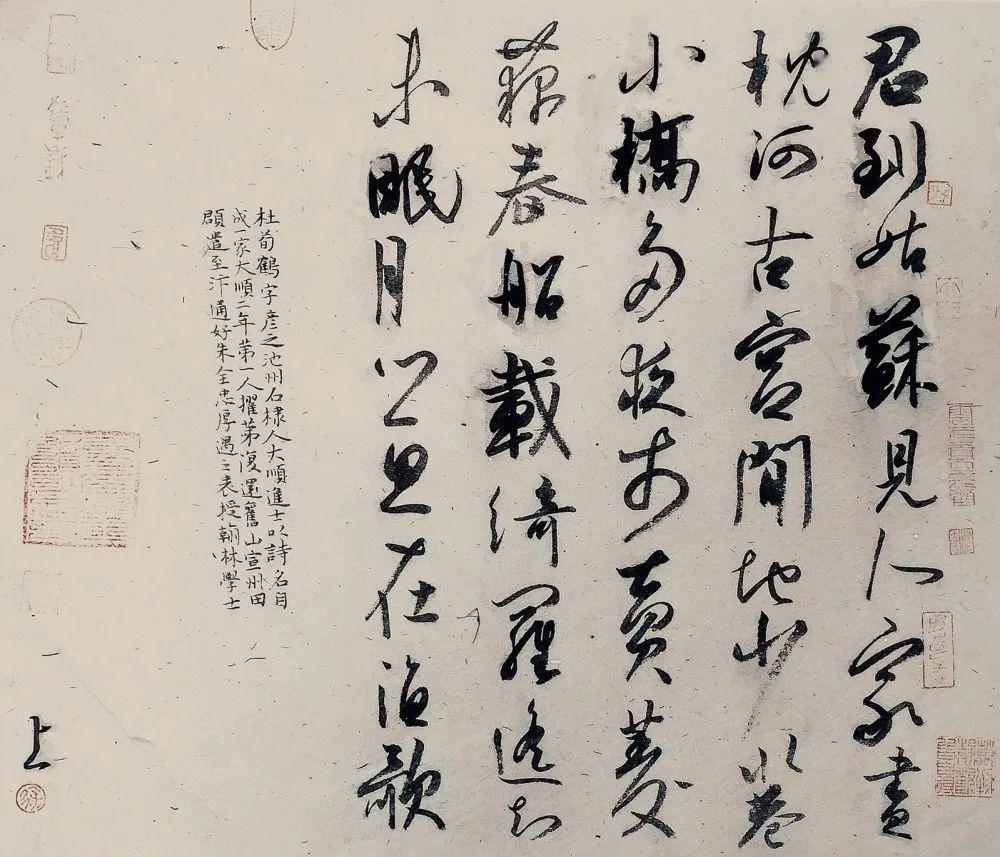 君到姑蘇見人家盡
枕河古宮閒地少水巷
小橋多夜市賣菱
藕春船載綺羅遙知
未眠月鄉思在漁歌
杜荀鶴字彦之池州石棣人大順進士以詩名目
成一家大順二年第一人擢第復還舊山宣州田
頵遣至汴通好朱全忠厚遇之表授翰林學士
上